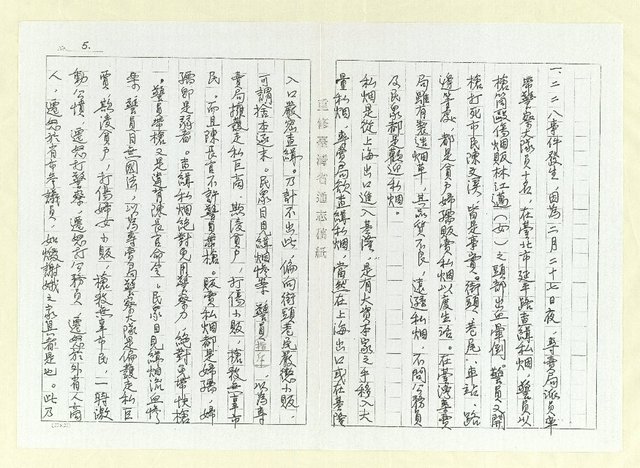 5.
一、二二八事件發生，因為二月二十七日夜，專賣局派員率
帶警察大隊員十名，在臺北市延平路查緝私烟，警員以
槍筒毆傷烟販林江邁（女）之頭部出血暈倒。警員又開
槍打死市民陳文溪，皆是事實。街頭、巷尾、車站、路
邊等處，都是貧戶婦孺販賣私烟以度生活。在臺灣專賣
局雖有製造烟草，其品質不良，遠遜私烟，不問公務員
及民眾都是歡迎私烟。
私烟是從上海出口進入基隆，是有大資本家之手移入大
量私烟，專賣局欲查緝私烟，當然在上海出口或在基隆
重修臺灣省通志稿紙
入口嚴密查緝。乃計不出此，偏向街頭老民嚴懲小販，
可謂捨本逐末。民眾目見緝烟慘案，警員 以為專
賣局擁護走私巨商，欺凌貧戶，打傷小販，槍殺無辜市
民。而且陳長官不許警員帶槍。販賣私烟都是婦孺，婦
孺即是弱者。查緝私烟絕對免用警察力，絕對免帶快槍
。警員帶槍又是違背陳長官命令。民眾目見緝烟流血慘
案，警員目無國法，以為專賣局警察大隊是偏護走私巨
賈，欺凌貧戶，打傷婦女小販，槍殺無辜市民，一時激
動公憤，遷怒打警察，遷怒打公務員，遷怒於外省人商
人，遷怒於省市參議員，如燬謝娥之家具者是也。此乃